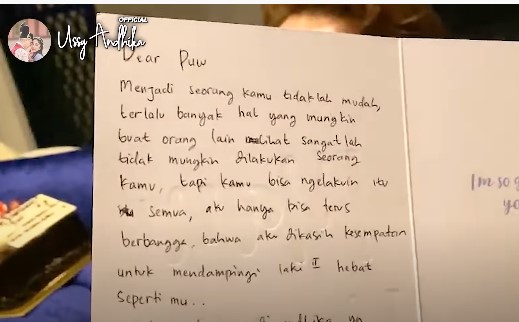 OFFICIAL
Ussy Andhika
Dear Puw
Menjadi seorang kamu tidaklah mudah,
terlalu banyak hal yang mungkin
buat orang lain melihat sangatlah
tidak mungkin dilakukan seorang
kamu, tapi kamu bisa ngelakuin itu
semua, aku hanya bisa terus
berbangga, bahwa aku dikasih kesempatan
untuk mendampingi laki II hebat
seperti mu..
I'm so
yo